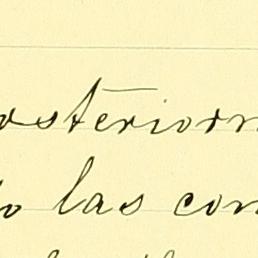 osteriorm
o las con